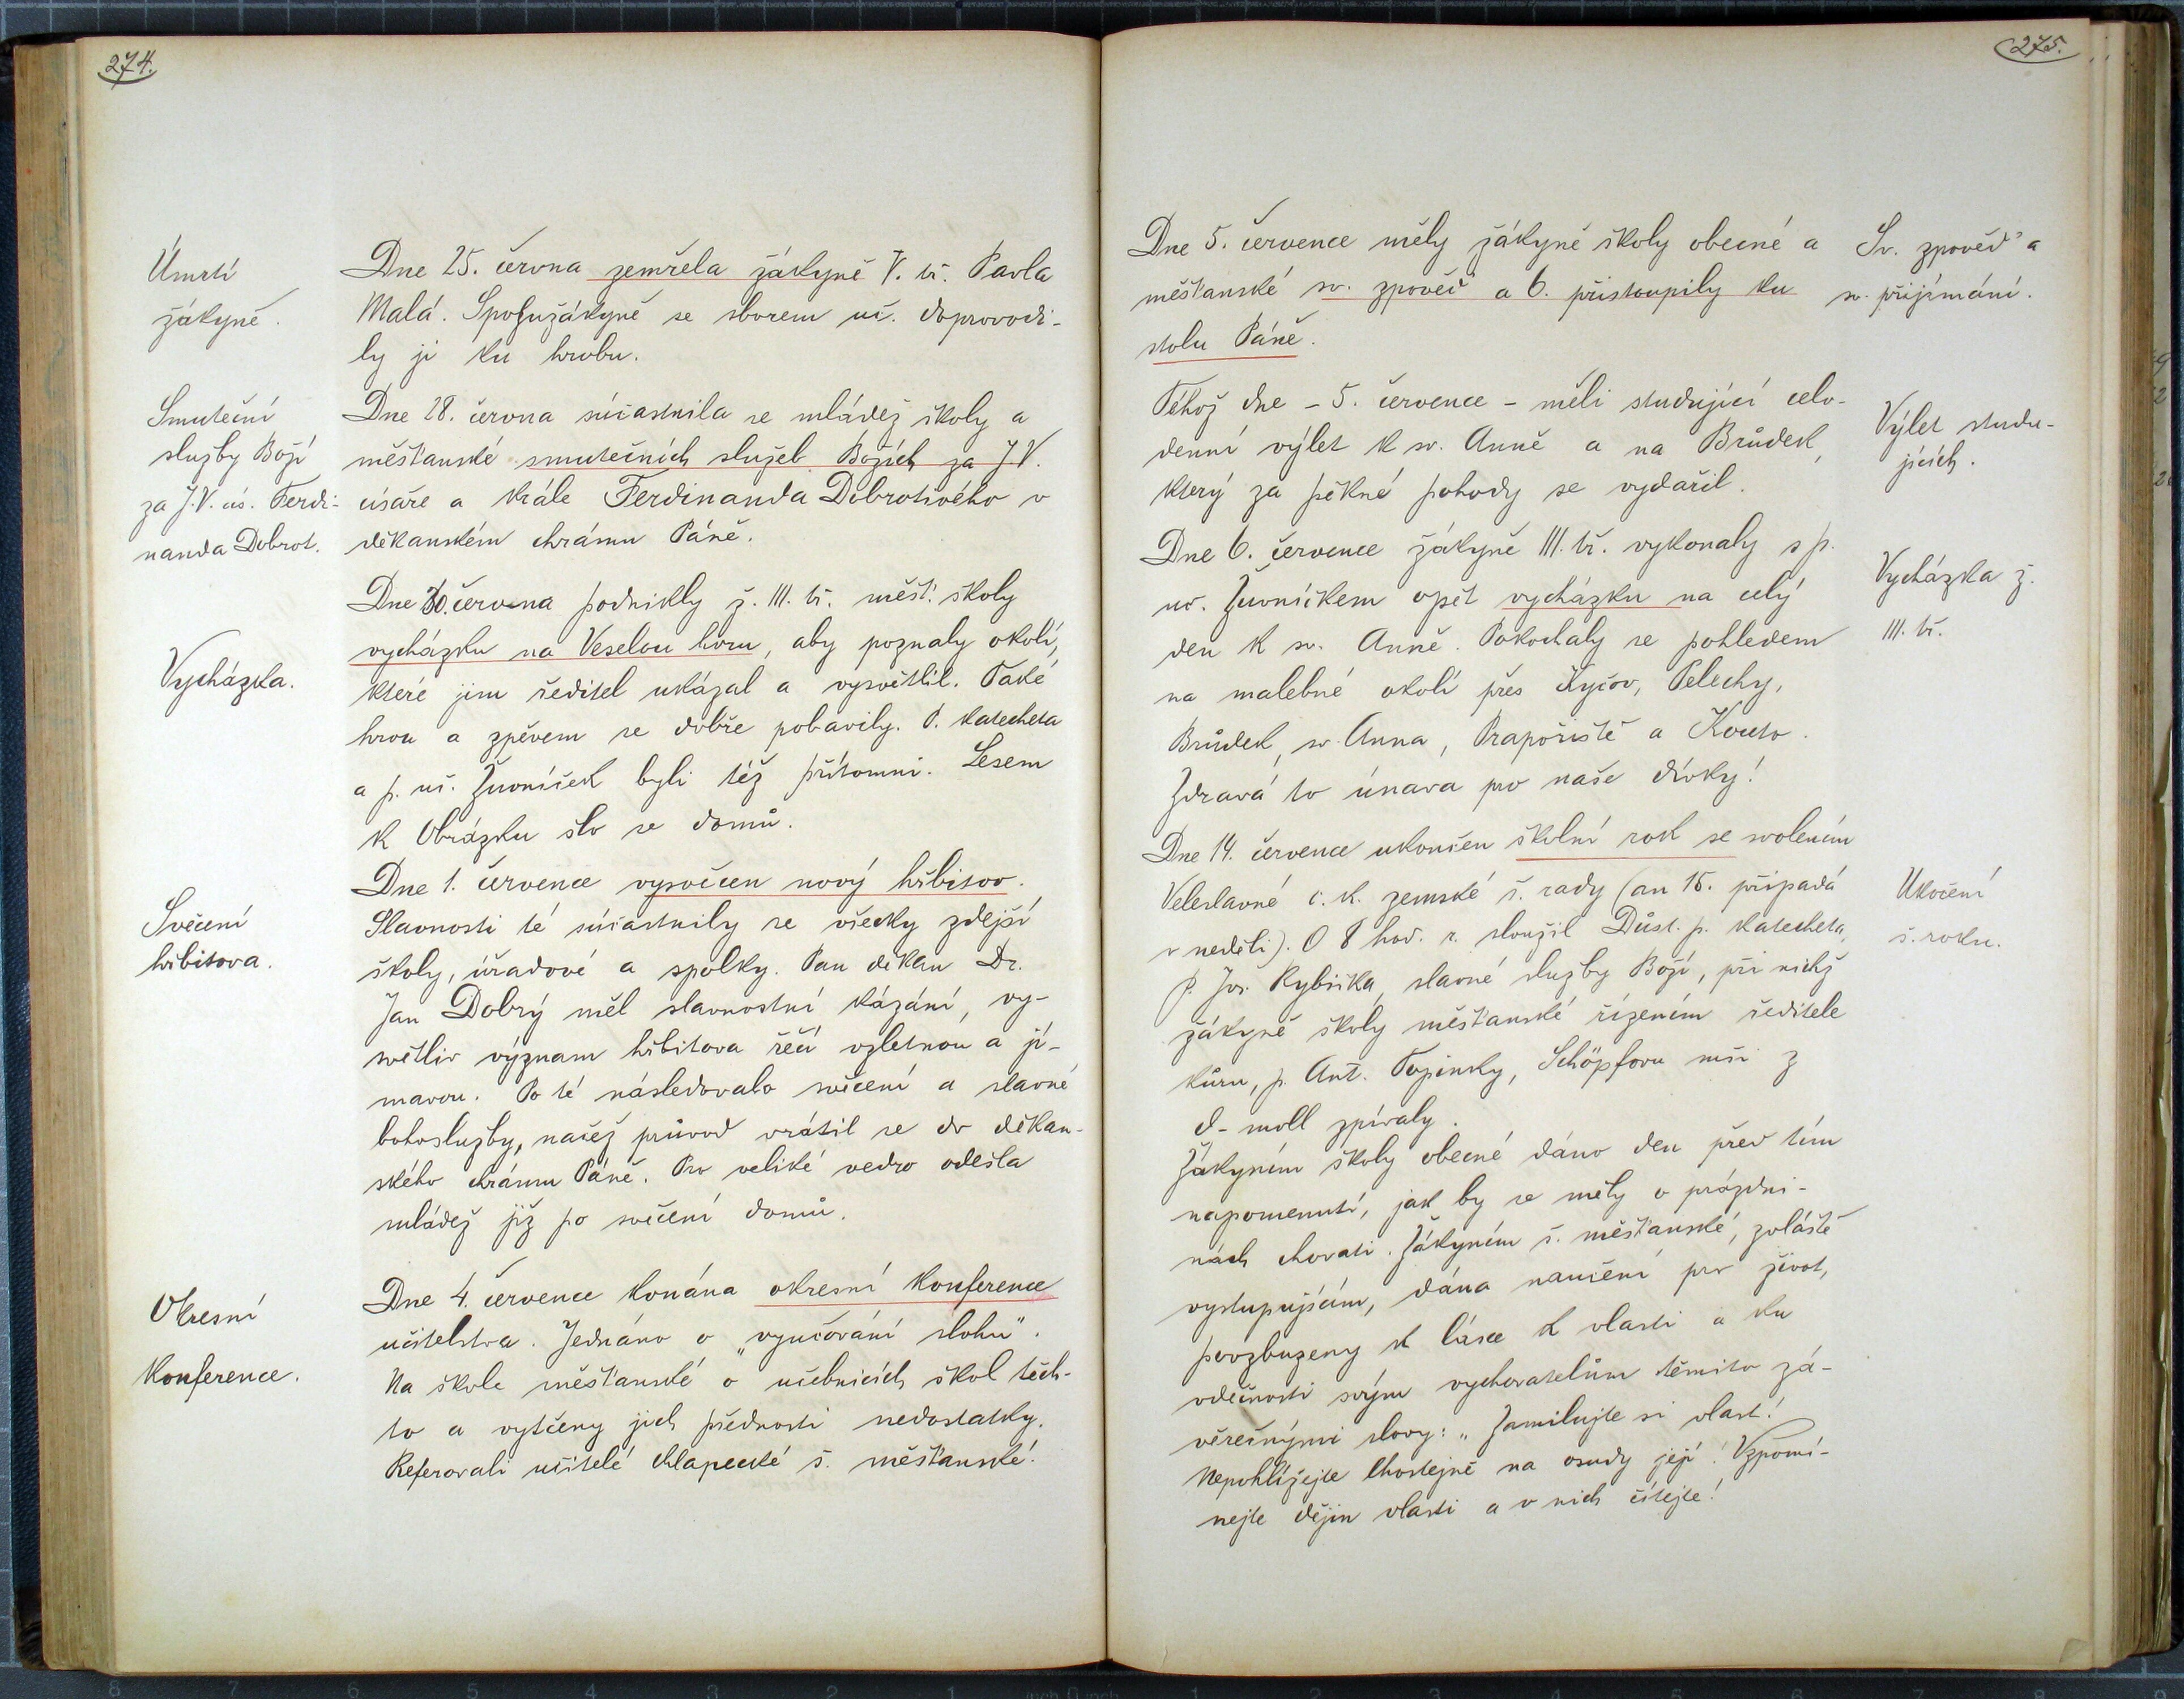 274.
Úmrtí
žákyně.
Dne 25. června zemřela žákyně V. tř. Pavla
Malá. Spolužákyně se sborem uč. doprovodi-
ly ji ku hrobu.
Smuteční
služby Boží
za J.V. cís. Ferdi-
nanda Dobrot.
Dne 28. června súčastnila se mládež školy a
měšťanské smutečních služeb Božích za J.V.
císaře a krále Ferdinanda Dobrotivého v
děkanském chrámu Páně.
Vycházka.
Dne 30. června podnikly ž. III. tř. měšť. školy
vycházku na Veselou horu, aby poznaly okolí,
které jim ředitel ukázal a vysvětlil. Také
hrou a zpěvem se dobře pobavily. P. katecheta
a p. uč. Živníček byli též přítomni. Lesem
k Obrázku šlo se domů.
Svěcení
hřbitova.
Dne 1. července vysvěcen nový hřbitov.
Slavnosti té súčastnily se všecky zdejší
školy, úřadové a spolky. Pan děkan Dr.
Jan Dobrý měl slavnostní kázání, vy-
světliv význam hřbitova řečí vzletnou a jí-
mavou. Po té následovalo svěcení a slavné
bohoslužby, načež průvod vrátil se do děkan-
ského chrámu Páně. Pro veliké vedro odešla
mládež již po svěcení domů.
Okresní
konference.
Dne 4. července konána okresní konference
učitelstva. Jednáno o „vyučování slohu".
Na škole měšťanské o učebnicích škol těch-
to a vytčeny jich přednosti nedostatky.
Referovali učitelé chlapecké š. měšťanské.
275.
Dne 5. července měly žákyně školy obecné a
měšťanské sv. zpověď a 6. přistoupily ku
stolu Páně.
Sv. zpověď a
sv. přijímání.
Téhož dne - 5. července - měli studující celo-
denní výlet k sv. Anně a na Brůdek,
který za pěkné pohody se vydařil.
Výlet studu-
jících.
Dne 6. července žákyně III. tř. vykonaly s p.
uč. Živníčkem opět vycházku na celý
den k sv. Anně. Pokochaly se pohledem
na malebné okolí přes Kyčov, Pelechy,
Brůdek, sv. Anna, Prapořiště a Kouto.
Zdravá to únava pro naše dívky!
Vycházka ž.
III. tř.
Dne 14. července ukončen školní rok se svolením
Veleslavné c. k. zemské š. rady (an 15. připadá
v neděli). O 8 hod. r. sloužil Důst. p. katecheta,
P. Jos. Rybička, slavné služby Boží, při nichž
žákyně školy měšťanské řízením ředitele
kůru, p. Ant. Topinky, Schöpfovu mši z
d-moll zpívaly.
Ukočení
š. roku.
Žákyním školy obecné dáno den před tím
napomenutí, jak by se měly o prázdni-
nách chovati. Žákyním š. měšťanské, zvláště
vystupujícím, dána naučení pro život,
povzbuzeny k lásce k vlasti a ku
vděčnosti svým vychovatelům těmito zá-
věrečnými slovy: „Zamilujte si vlast!
Nepohlížejte lhostejně na osudy její! Vzpomí-
nejte dějin vlasti a v nich čítejte!